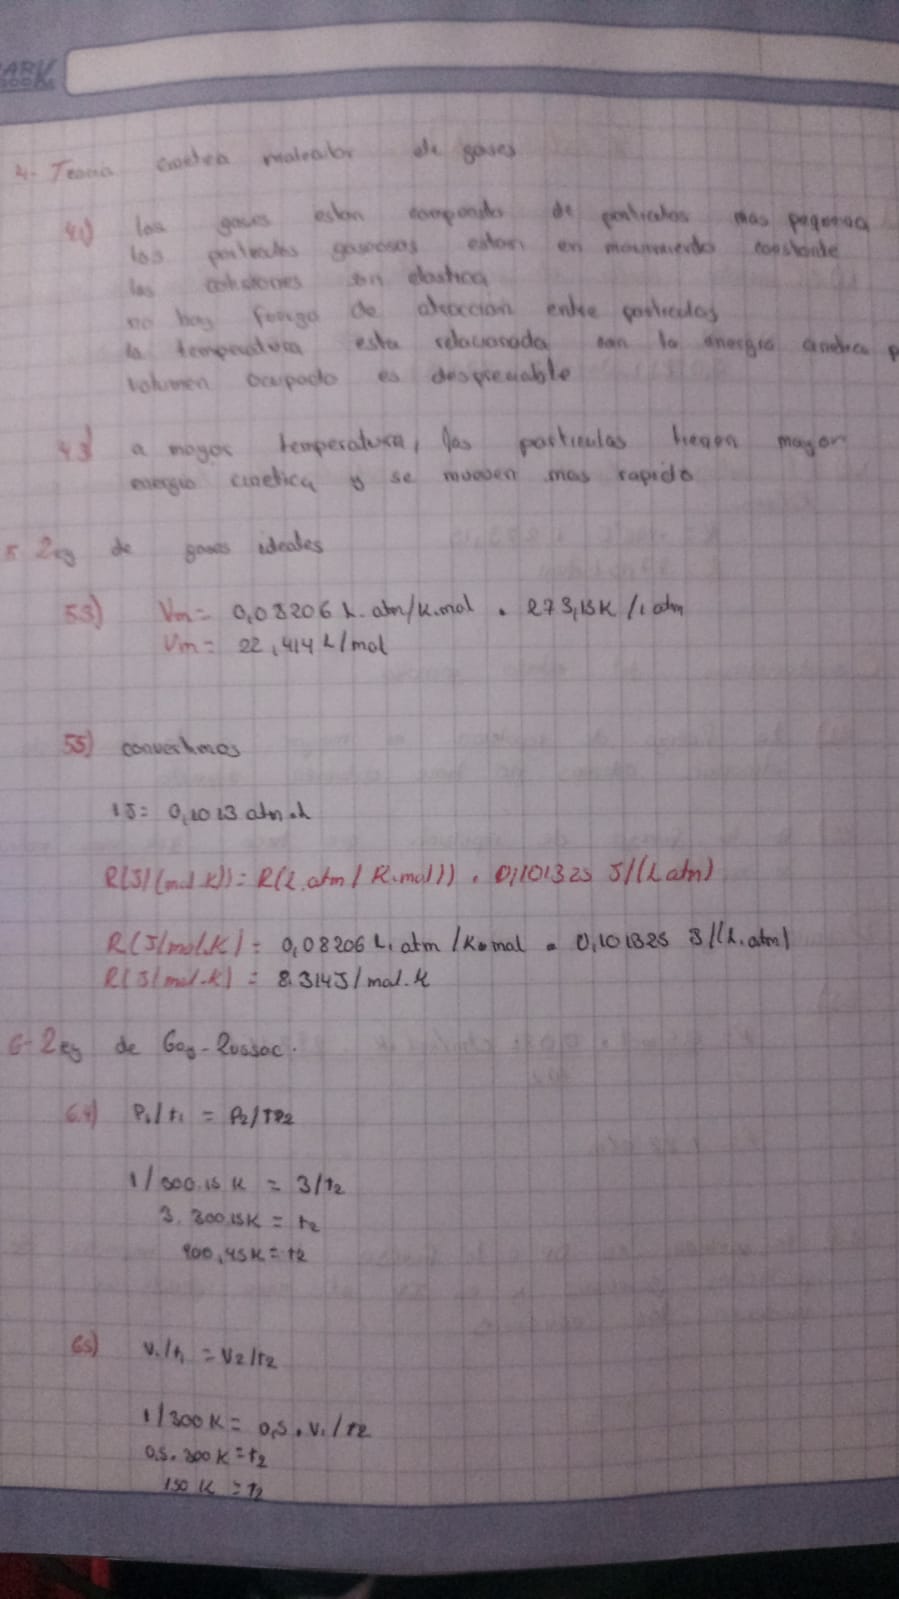 4- Teoria cinetica molecular de gases
4.1) los gases estan compuesto de particulas mas pequeña
las particulas gaseosas estan en movimiento constante
las colisiones son elastica
no hay fuerza de atraccion entre particulas
la temperatura esta relacionada con la energia cinetica p
volumen ocupado es despreciable
4.3) a mayor temperatura, las particulas tienen mayor
energia cinetica y se mueven mas rapido
5- Ley de gases ideales
5.3) Vm = 0,08206 L.atm/K.mol . 273,15K /1 atm
Vm = 22,414 L/mol
5.5) convertimos
1J = 0,1013 atm.L
R(J/(mol.K)) = R(L.atm/K.mol)) . 0,101325 J/(L atm)
R(J/mol.K) = 0,08206 L.atm/K.mol . 0,101325 J/(L.atm)
R(J/mol.K) = 8.314J/mol.K
6- Ley de Gay-Lussac.
6.4) P1/t1 = P2/TP2
1/300.15 K = 3/t2
3. 300.15K = t2
900,45K = t2
6.5) V1/t1 = V2/t2
1/300K = 0,5 . V1/t2
0,5. 300K = t2
150 K = t2